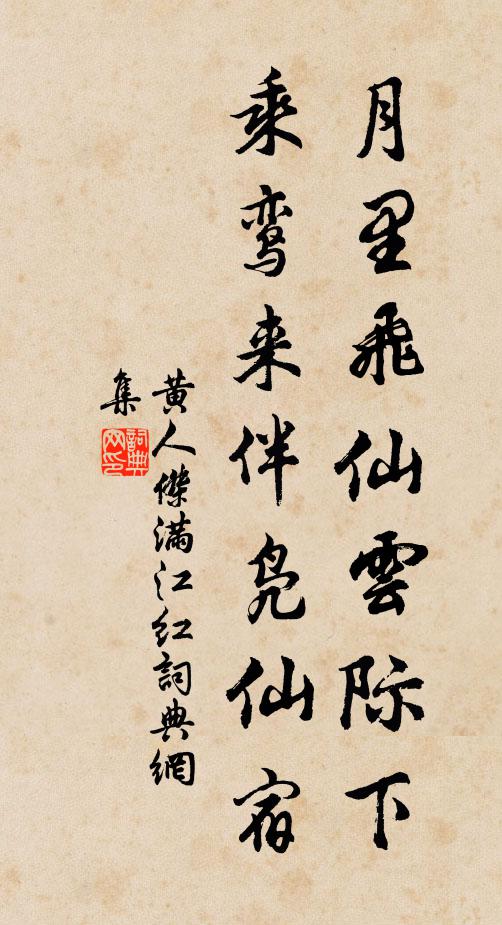 月里飛仙雲际下
乘鸾来伴凫仙宿
黄人傑满江红詞典網
集
詞典
网印